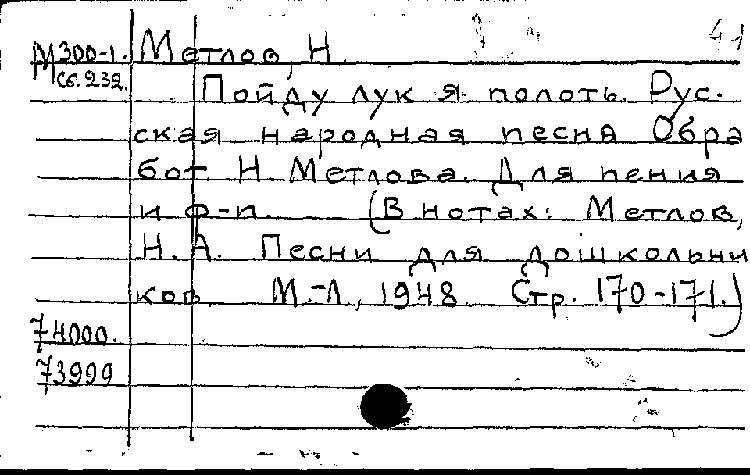 41
М300-1. Метлов, Н.
Сб.232.
Пойду лук я полоть. Рус-
ская народная песня Обра
бот Н. Метлова. Для пения
и ф-п. (В нотах: Метлов,
Н.А. Песни для дошкольни
ков М.-Л., 1948. Стр. 170-171.)
74000.
73999